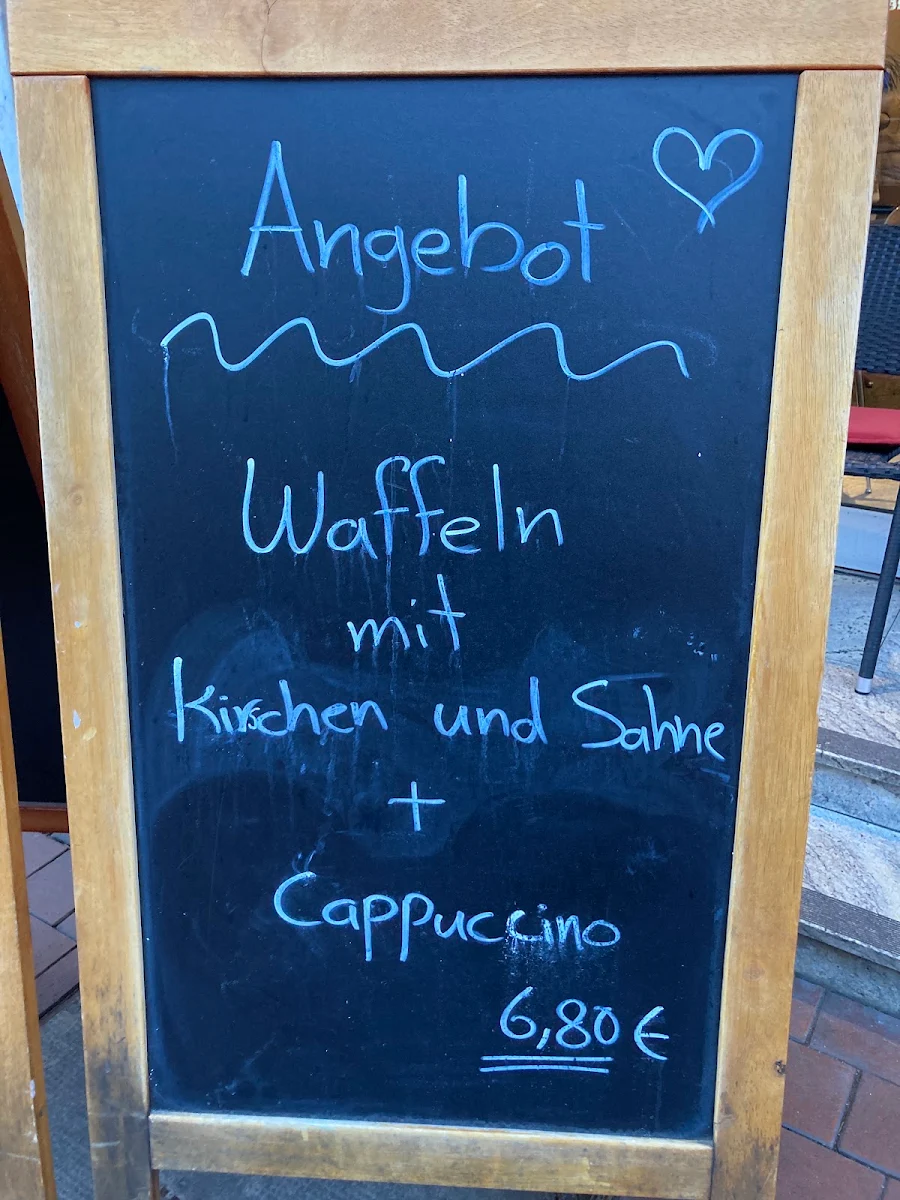 Angebot
Waffeln
mit
Kirschen und Sahne
+
Cappuccino
6,80 €